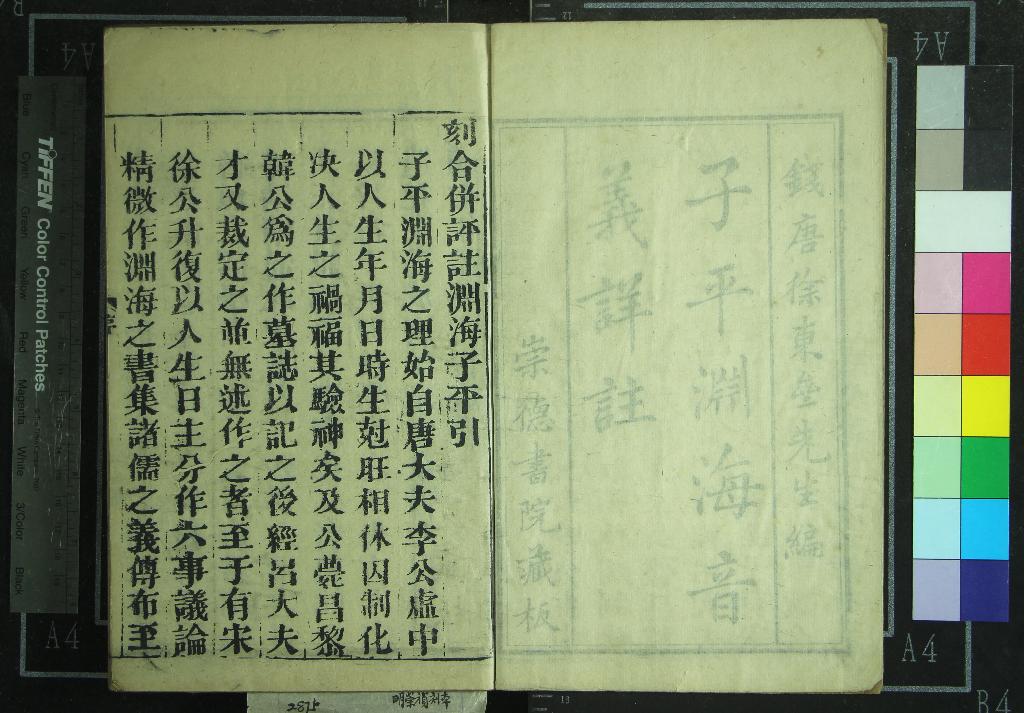 錢唐徐東齋先生編
子平淵海音
義詳註
崇德書院藏板
刻合併評註淵海子平引
子平淵海之理始自唐大夫李公虛中
以人生年月日時生尅旺相休囚制化
決人生之禍福其驗神矣及公薨昌黎
韓公爲之作墓誌以記之後經呂大夫
才又裁定之並無述作之者至于有宋
徐公升復以人生日主分作六事議論
精微作淵海之書集諸儒之義傳布至
TIFFEN Color Control Patches
Blue
Cyan
Green
Yellow
Red
Magenta
White
3/Color
Black
A4
A4
A4
A4
B4
2875
明崇禎刻本
12
13